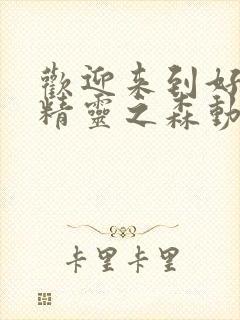 歡迎来到好
精靈之森動
卡里卡里